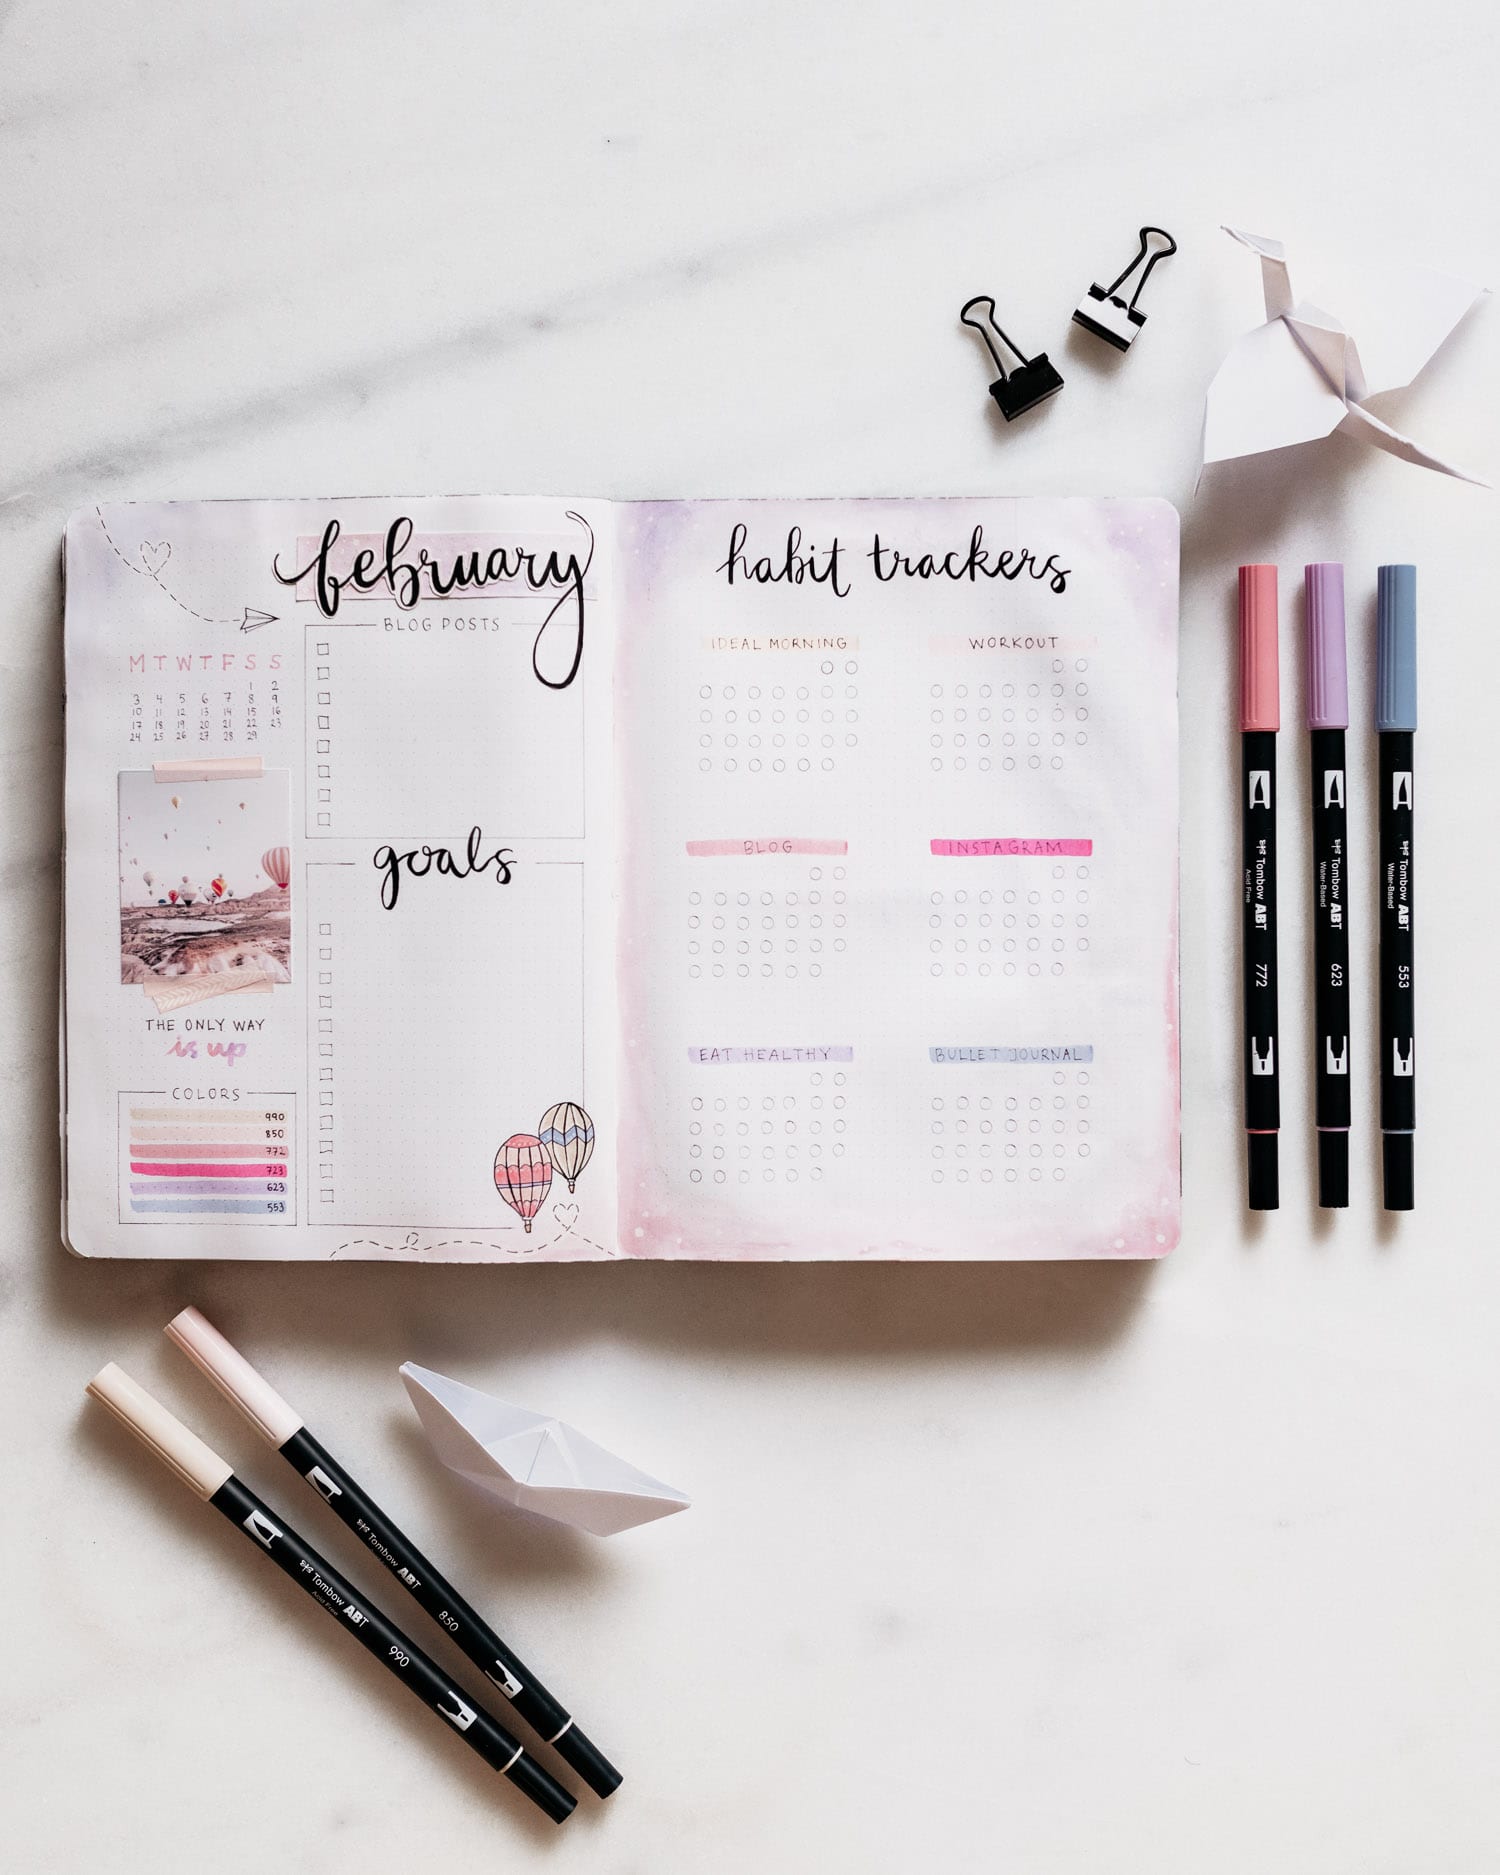 february
BLOG POSTS
M T W T F S S
1 2
3 4 5 6 7 8 9
10 11 12 13 14 15 16
17 18 19 20 21 22 23
24 25 26 27 28 29
goals
THE ONLY WAY
is up
COLORS
990
850
772
723
623
553
habit trackers
IDEAL MORNING
WORKOUT
BLOG
INSTAGRAM
EAT HEALTHY
BULLET JOURNAL
Tombow ABT
Acid Free
772
Tombow ABT
Water-Based
623
Tombow ABT
Water-Based
553
Tombow ABT
850
Tombow ABT
Acid Free
990